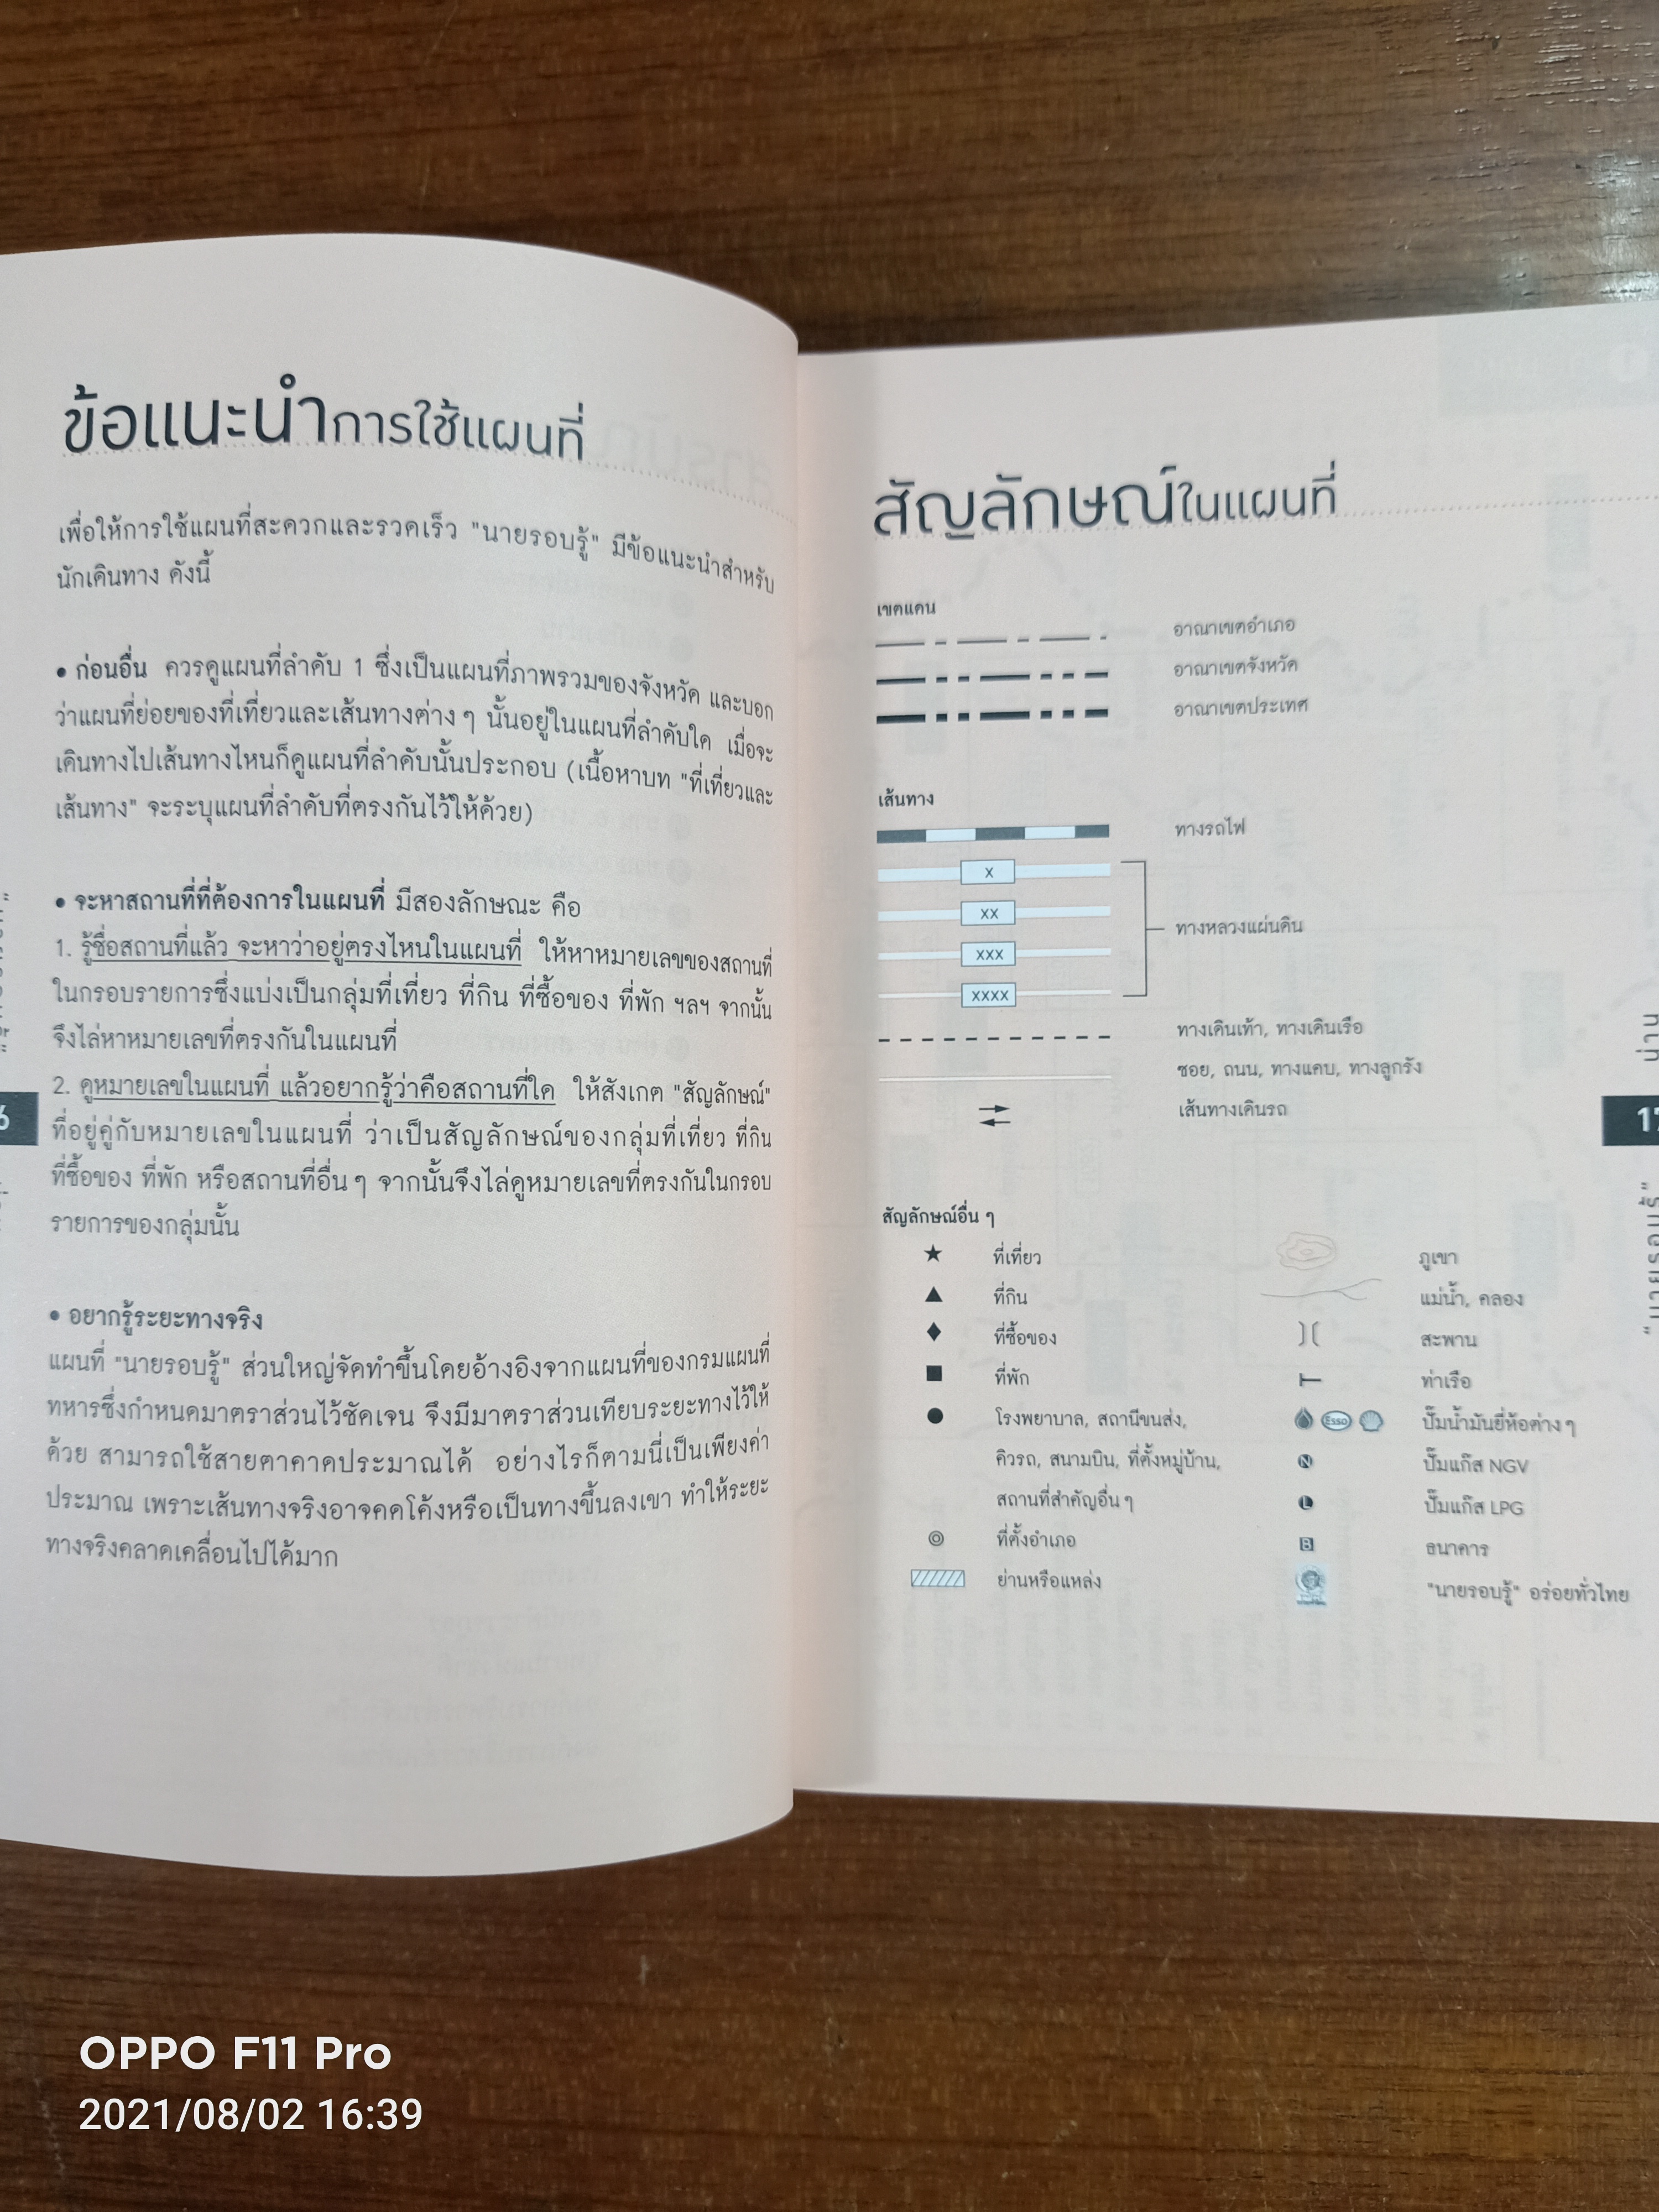 ข้อแนะนำการใช้แผนที่
เพื่อให้การใช้แผนที่สะดวกและรวดเร็ว "นายรอบรู้" มีข้อแนะนำสำหรับ
นักเดินทาง ดังนี้
• ก่อนอื่น ควรดูแผนที่ลำดับ 1 ซึ่งเป็นแผนที่ภาพรวมของจังหวัด และบอก
ว่าแผนที่ย่อยของที่เที่ยวและเส้นทางต่าง ๆ นั้นอยู่ในแผนที่ลำดับใด เมื่อจะ
เดินทางไปเส้นทางไหนก็ดูแผนที่ลำดับนั้นประกอบ (เนื้อหาบท "ที่เที่ยวและ
เส้นทาง" จะระบุแผนที่ลำดับที่ตรงกันไว้ให้ด้วย)
• จะหาสถานที่ที่ต้องการในแผนที่ มีสองลักษณะ คือ
1. รู้ชื่อสถานที่แล้ว จะหาว่าอยู่ตรงไหนในแผนที่ ให้หาหมายเลขของสถานที่
ในกรอบรายการซึ่งแบ่งเป็นกลุ่มที่เที่ยว ที่กิน ที่ซื้อของ ที่พัก ฯลฯ จากนั้น
จึงไล่หาหมายเลขที่ตรงกันในแผนที่
2. ดูหมายเลขในแผนที่ แล้วอยากรู้ว่าคือสถานที่ใด ให้สังเกต "สัญลักษณ์"
ที่อยู่คู่กับหมายเลขในแผนที่ ว่าเป็นสัญลักษณ์ของกลุ่มที่เที่ยว ที่กิน
ที่ซื้อของ ที่พัก หรือสถานที่อื่น ๆ จากนั้นจึงไล่ดูหมายเลขที่ตรงกันในกรอบ
รายการของกลุ่มนั้น
• อยากรู้ระยะทางจริง
แผนที่ "นายรอบรู้" ส่วนใหญ่จัดทำขึ้นโดยอ้างอิงจากแผนที่ของกรมแผนที่
ทหารซึ่งกำหนดมาตราส่วนไว้ชัดเจน จึงมีมาตราส่วนเทียบระยะทางไว้ให้
ด้วย สามารถใช้สายตาคาดประมาณได้ อย่างไรก็ตามนี่เป็นเพียงค่า
ประมาณ เพราะเส้นทางจริงอาจคดโค้งหรือเป็นทางขึ้นลงเขา ทำให้ระยะ
ทางจริงคลาดเคลื่อนไปได้มาก
6
สัญลักษณ์ในแผนที่
เขตแดน
อาณาเขตอำเภอ
อาณาเขตจังหวัด
อาณาเขตประเทศ
เส้นทาง
ทางรถไฟ
X
XX
XXX
XXXX
ทางหลวงแผ่นดิน
ทางเดินเท้า, ทางเดินเรือ
ซอย, ถนน, ทางแคบ, ทางลูกรัง
เส้นทางเดินรถ
สัญลักษณ์อื่น ๆ
ที่เที่ยว
ที่กิน
ที่ซื้อของ
ที่พัก
โรงพยาบาล, สถานีขนส่ง,
คิวรถ, สนามบิน, ที่ตั้งหมู่บ้าน,
สถานที่สำคัญอื่น ๆ
ที่ตั้งอำเภอ
ย่านหรือแหล่ง
ภูเขา
แม่น้ำ, คลอง
สะพาน
ท่าเรือ
Esso ปั๊มน้ำมันยี่ห้อต่าง ๆ
N ปั๊มแก๊ส NGV
L ปั๊มแก๊ส LPG
B ธนาคาร
"นายรอบรู้" อร่อยทั่วไทย
น่าน
17
"นายรอบรู้"
OPPO F11 Pro
2021/08/02 16:39